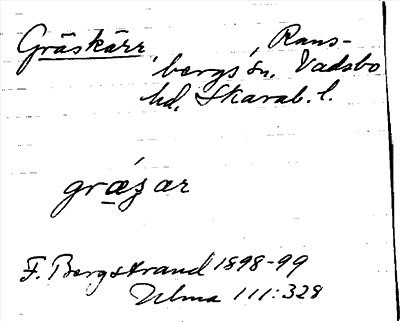 Gräskärr, Rans-
bergs sn. Vadsbo
hd. Skarab. l.
græ´ʒar
F. Bergstrand 1898-99
Ulma 111:328